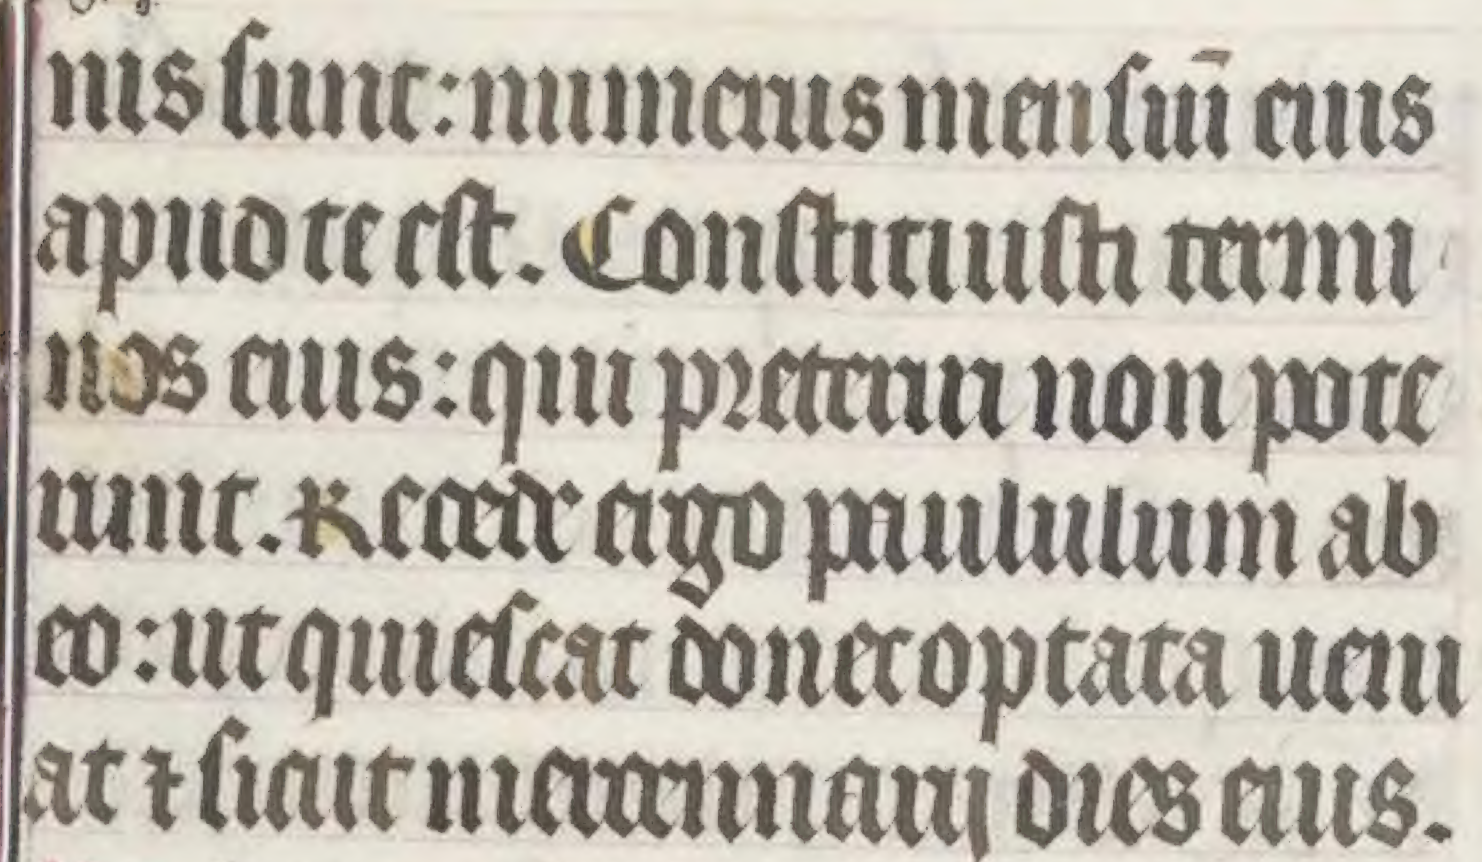 nis sunt: numerus mensiū eius
apud te est. Constituisti termi
nos eius: qui preteriri non pote
runt. Recede ergo paululum ab
eo: ut quiescat donec optata veni
at ⁊ sicut mercennarij dies eius.